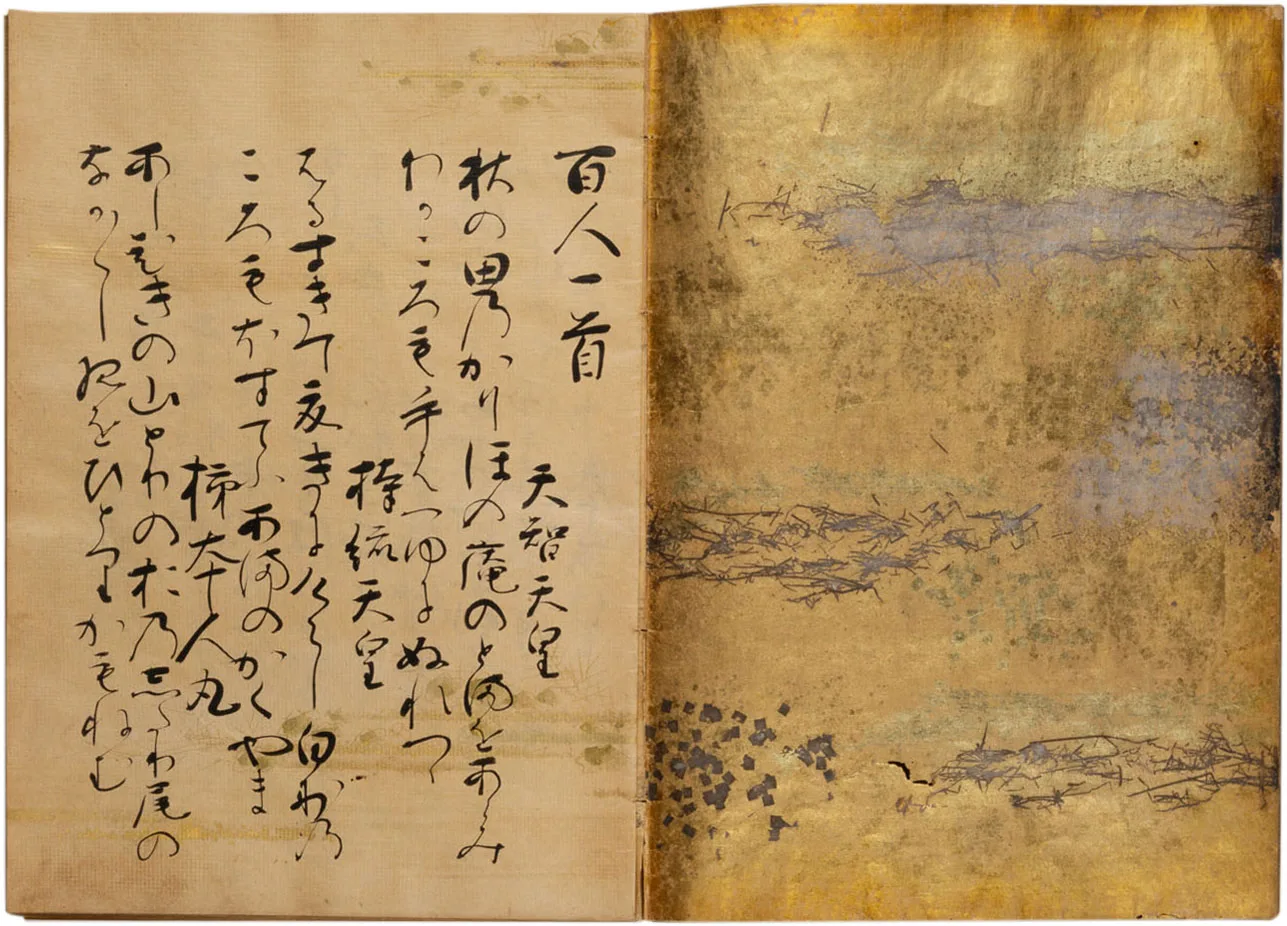 百人一首
天智天皇
秋の田乃かりほの庵のとまをあらみ
わかころも手はつゆにぬれつゝ
持統天皇
はるすきて夏きにけらし白たへの
ころもほすてふあまのかくやま
柿本人丸
あしひきの山とりのお乃したり尾の
なか〳〵し夜をひとりかもねむ